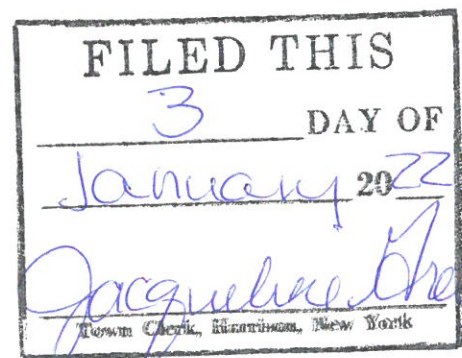 FILED THIS
3 DAY OF
January 2022
Jacqueline
Town Clerk, Harrison, New York